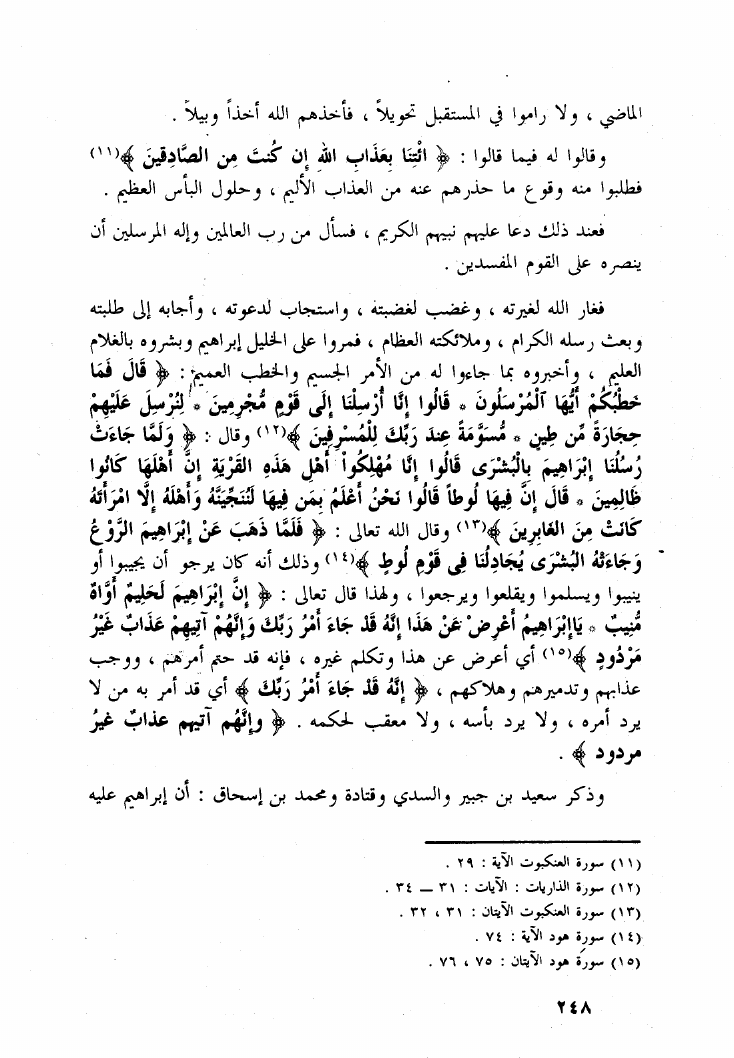 الماضي ، ولا راموا في المستقبل تحويلاً ، فأخذهم الله أخذاً وبيلاً .
وقالوا له فيما قالوا : ﴿ ائْتِنَا بِعَذَابِ اللهِ إِن كُنتَ مِن الصَّادِقينَ ﴾(١١)
فطلبوا منه وقوع ما حذرهم عنه من العذاب الأليم ، وحلول البأس العظيم .
فعند ذلك دعا عليهم نبيهم الكريم ، فسأل من رب العالمين وإله المرسلين أن
ينصره على القوم المفسدين .
فغار الله لغيرته ، وغضب لغضبته ، واستجاب لدعوته ، وأجابه إلى طلبته
وبعث رسله الكرام ، وملائكته العظام ، فمروا على الخليل إبراهيم وبشروه بالغلام
العليم ، وأخبروه بما جاءوا له من الأمر الجسيم والخطب العميم : ﴿ قَالَ فَمَا
خَطْبُكُمْ أَيُّهَا الْمُرْسَلُونَ * قَالُوا إِنَّا أُرْسِلْنَا إِلَى قَوْمٍ مُّجْرِمِينَ * لِنُرْسِلَ عَلَيْهِمْ
حِجَارَةً مِّن طِينٍ * مُسَوَّمَةً عِندَ رَبِّكَ لِلْمُسْرِفِينَ ﴾(١٢) وقال : ﴿ وَلَمَّا جَاءَتْ
رُسُلُنَا إِبْرَاهِيمَ بِالْبُشْرَى قَالُوا إِنَّا مُهْلِكُواْ أَهْلِ هَذِهِ القَرْيَةِ إِنَّ أَهْلَهَا كَانُوا
ظَالِمِينَ * قَالَ إِنَّ فِيهَا لُوطاً قَالُوا نَحْنُ أَعْلَمُ بِمَن فِيهَا لَنُنَجِّيَنَّهُ وَأَهْلَهُ إِلَّا امْرَأَتَهُ
كَانَتْ مِنَ الغَابِرِينَ ﴾(١٣) وقال الله تعالى : ﴿ فَلَمَّا ذَهَبَ عَنْ إِبْرَاهِيمَ الرَّوْعُ
وَجَاءَتْهُ البُشْرَى يُجَادِلُنَا فِى قَوْمِ لُوطٍ ﴾(١٤) وذلك أنه كان يرجو أن يجيبوا أو
ينيبوا ويسلموا ويقلعوا ويرجعوا ، ولهذا قال تعالى : ﴿ إِنَّ إِبْرَاهِيمَ لَحَلِيمٌ أَوَّاهٌ
مُّنِيبٌ * يَاإِبْرَاهِيمُ أَعْرِضْ عَنْ هَذَا إِنَّهُ قَدْ جَاءَ أَمْرُ رَبِّكَ وَإِنَّهُمْ آتِيهِمْ عَذَابٌ غَيْرُ
مَرْدُودٍ ﴾(١٥) أي أعرض عن هذا وتكلم غيره ، فإنه قد حتم أمرهم ، ووجب
عذابهم وتدميرهم وهلاكهم ، ﴿ إِنَّهُ قَدْ جَاءَ أَمْرُ رَبِّكَ ﴾ أي قد أمر به من لا
يرد أمره ، ولا يرد بأسه ، ولا معقب لحكمه . ﴿ وإنَّهُم آتيهم عذابٌ غيرُ
مردود ﴾ .
وذكر سعيد بن جبير والسدي وقتادة ومحمد بن إسحاق : أن إبراهيم عليه
(١١) سورة العنكبوت الآية : ٢٩ .
(١٢) سورة الذاريات : الآيات : ٣١ — ٣٤ .
(١٣) سورة العنكبوت الآيتان : ٣١ ، ٣٢ .
(١٤) سورة هود الآية : ٧٤ .
(١٥) سورة هود الآيتان : ٧٥ ، ٧٦ .
٢٤٨